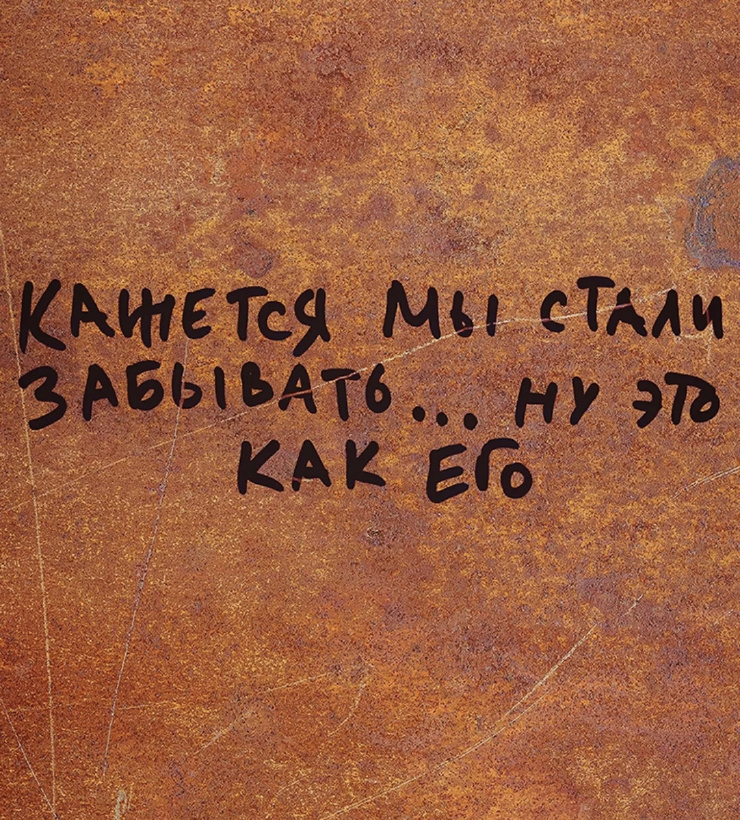 КАЖЕТСЯ МЫ СТАЛИ
ЗАБЫВАТЬ... НУ ЭТО
КАК ЕГО